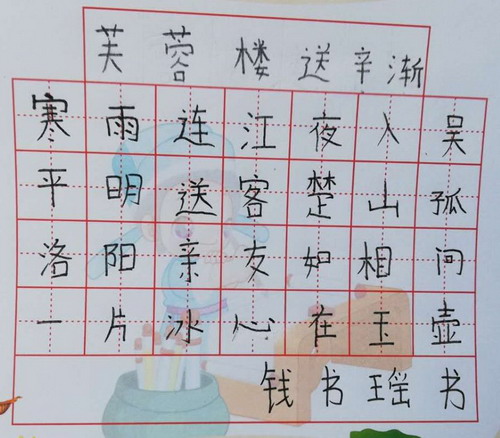 芙蓉楼送辛渐
寒雨连江夜入吴
平明送客楚山孤
洛阳亲友如相问
一片冰心在玉壶
钱书瑶书